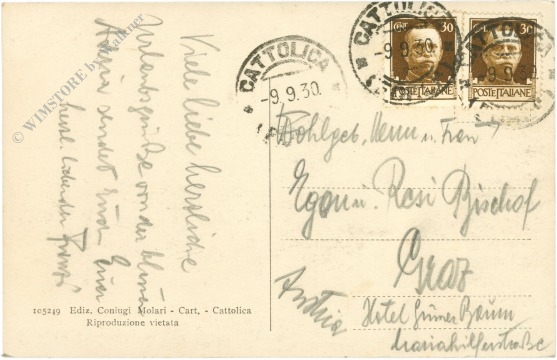 Viele liebe herzliche
Urlaubsgrüße von der blauen
Adria sendet Euch Euer
herzl. liebender Franzl
CATTOLICA
-9.9.30.
CATTOLICA
-9.9.30
CENT. 30
POSTE ITALIANE
CATTOLICA
30
POSTE ITALIANE
Wohlgeb. Herrn u. Frau
Egon u. Resi Bischof
Graz
Austria
Hotel Grüner Baum
Mariahilferstraße
105249 Ediz. Coniugi Molari - Cart. - Cattolica
Riproduzione vietata
© WIMSTORE by